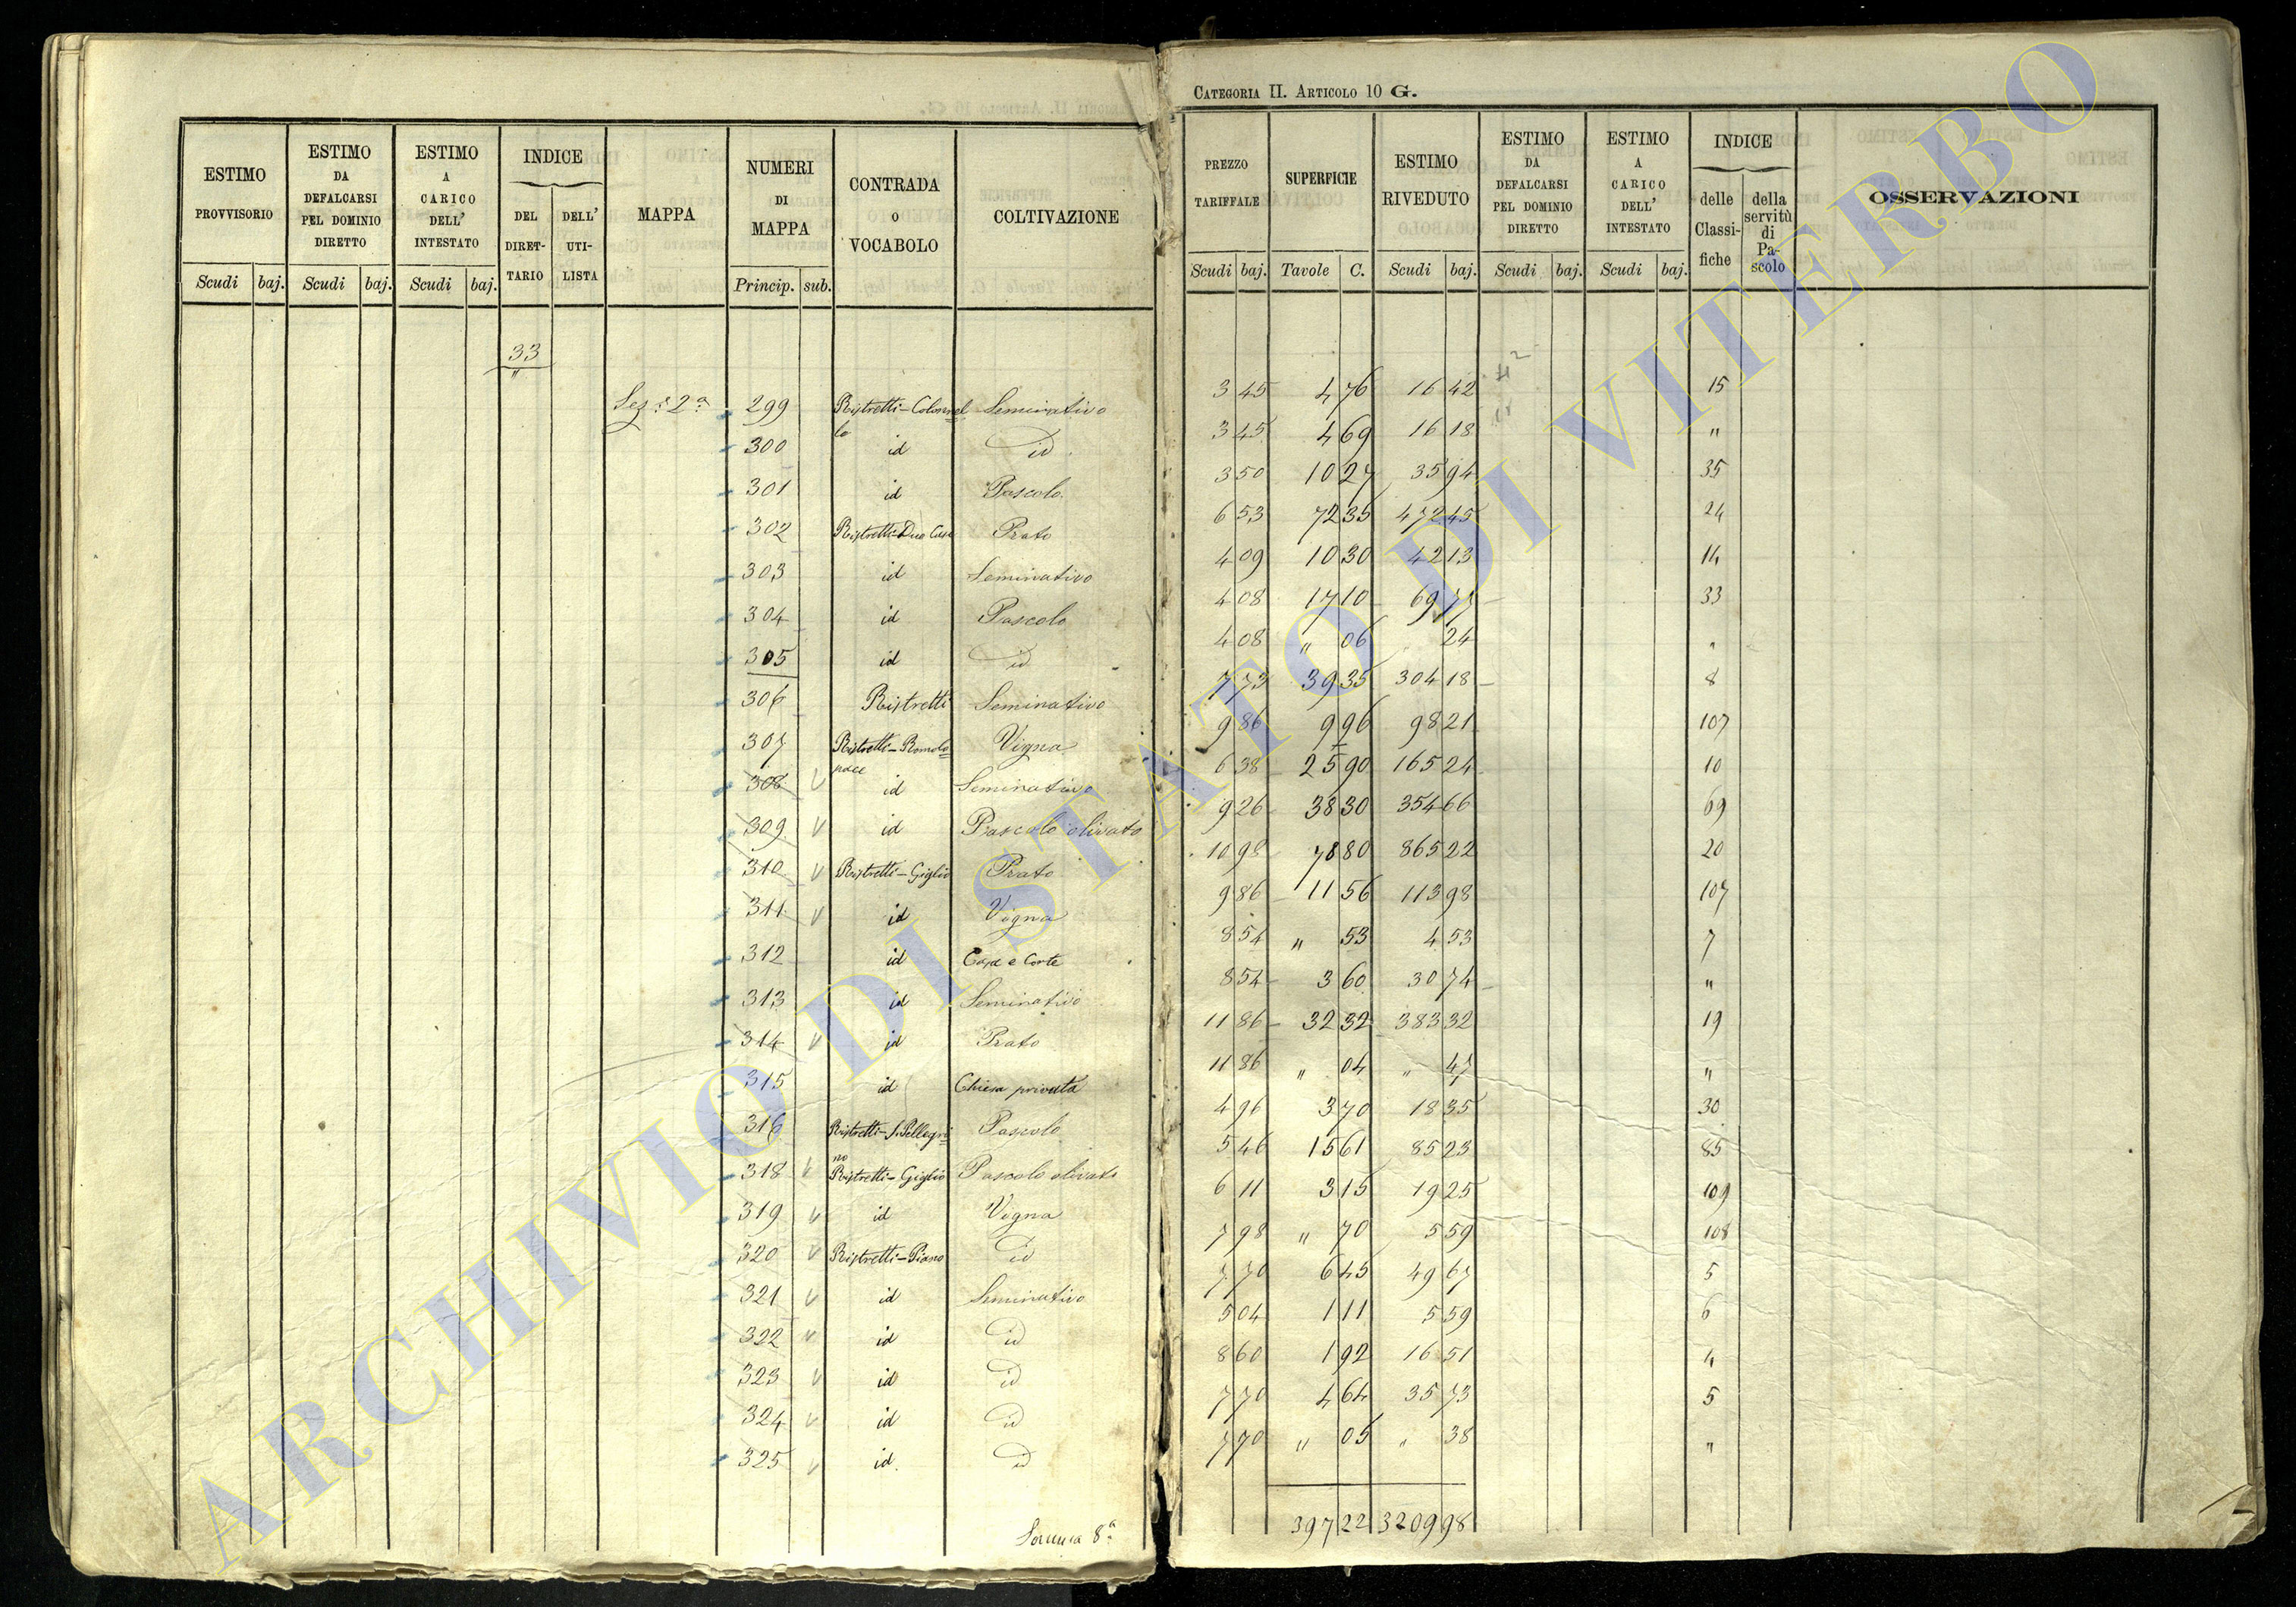 CATEGORIA II. ARTICOLO 10 G.
ESTIMO PROVVISORIO | ESTIMO DA DEFALCARSI PEL DOMINIO DIRETTO | ESTIMO A CARICO DELL' INTESTATO | INDICE DEL DIRET-TARIO | DELL' UTI-LISTA | MAPPA | NUMERI DI MAPPA | CONTRADA O VOCABOLO | COLTIVAZIONE | PREZZO TARIFFALE | SUPERFICIE | ESTIMO RIVEDUTO | ESTIMO DA DEFALCARSI PEL DOMINIO DIRETTO | ESTIMO A CARICO DELL' INTESTATO | INDICE delle Classi-fiche | della servitù di Pa-scolo | OSSERVAZIONI
Scudi | baj. | Scudi | baj. | Scudi | baj. | Princip. | sub. | Scudi | baj. | Tavole | C. | Scudi | baj. | Scudi | baj. | Scudi | baj.
33
"
Sez.e 2a 299 Ristretti-Colonnel Seminativo 3 45 4 76 16 42 15
lo
300 id id 3 45 4 69 16 18 "
301 id Pascolo 3 50 10 27 35 94 35
302 Ristretti-Due Case Prato 6 53 72 35 472 45 24
303 id Seminativo 4 09 10 30 42 13 14
304 id Pascolo 4 08 17 10 69 77 33
305 id id 4 08 " 06 " 24 "
306 Ristretti Seminativo 7 73 39 35 304 18 8
307 Ristretti-Romolo Vigna 9 86 9 96 98 21 107
pace
308 id Seminativo 6 38 25 90 165 24 10
309 id Pascolo olivato 9 26 38 30 354 66 69
310 Ristretti-Giglio Prato 10 98 78 80 865 22 20
311 id Vigna 9 86 11 56 113 98 107
312 id Casa e Corte 8 54 " 53 4 53 7
313 id Seminativo 8 54 3 60 30 74 "
314 id Prato 11 86 32 32 383 32 19
315 id Chiesa privata 11 86 " 04 " 47 "
316 Ristretti-S. Pellegri Pascolo 4 96 3 70 18 35 30
no
318 Ristretti-Giglio Pascolo olivato 5 46 15 61 85 23 85
319 id Vigna 6 11 3 15 19 25 109
320 Ristretti-Piano id 7 98 " 70 5 59 108
321 id Seminativo 7 70 6 45 49 67 5
322 id id 5 04 1 11 5 59 6
323 id id 8 60 1 92 16 51 4
324 id id 7 70 4 64 35 73 5
325 id id 7 70 " 05 " 38 "
Somma 8a 397 22 3209 98
ARCHIVIO DI STATO DI VITERBO